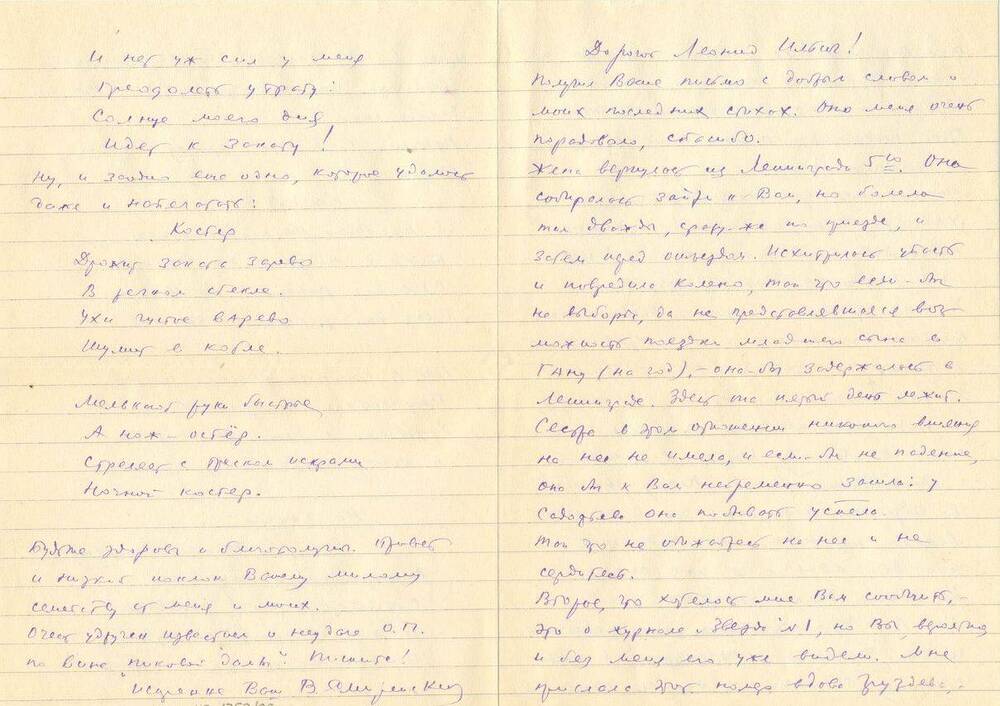 И нет уж сил у меня
Преодолеть утрату:
Солнце моего дня
Идет к закату!
Ну, и заодно еще одно, которое удалось
даже и напечатать:
Костер
Дрожит заката зарево
В речном стекле.
Ухи густое варево
Шумит в котле.
Мелькают руки быстрые
А нож – остёр.
Стреляет с треском искрами
Ночной костер.
Будьте здоровы и благополучны. Привет
и низкий поклон Вашему милому
семейству от меня и моих.
Очень удручен известием о неудаче О.П.
по вине пиковой "дамы". Пишите!
Искренне Ваш В.
Дорогой Леонид Ильич!
Получил Ваше письмо с добрым словом о
моих последних стихах. Оно меня очень
порадовало, спасибо.
Жена вернулась из Ленинграда 5го. Она
собиралась зайти к Вам, но болела
там дважды, сразу-же по приезде, и
затем перед отъездом. Исхитрилась упасть
и повредила колено, так что если-бы
не выборы, да не представлявшаяся воз-
можность поездки младшего сына в
Гану (на год), – она-бы задержалась в
Ленинграде. Здесь она пятый день лежит.
Сестра в этом отношении никакого влияния
на нее не имела, и если-бы не падение,
она бы к Вам непременно зашла: у
она побывать успела.
Так что не обижайтесь на нее и не
сердитесь.
Второе, что хотелось мне Вам сообщить, –
это о журнале "Звезда" №1, но Вы, вероятно,
и без меня его уже видели. Мне
прислала этот вдова Груздева, –